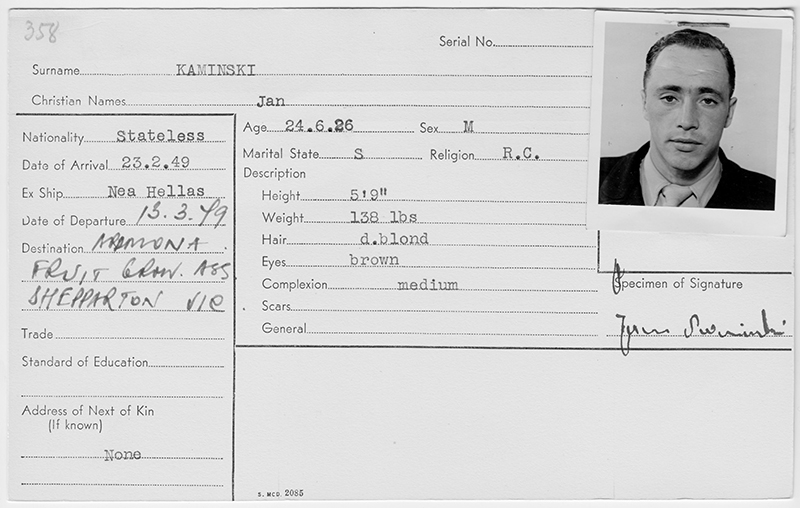 358
Serial No.
Surname KAMINSKI
Christian Names Jan
Nationality Stateless
Date of Arrival 23.2.49
Ex Ship Nea Hellas
Date of Departure 13.3.49
Destination ARDMONA
FRUIT GROW. ASS.
SHEPPARTON VIC
Trade
Standard of Education
Address of Next of Kin
(If known)
None
Age 24.6.26 Sex M
Marital State S Religion R.C.
Description
Height 5'9"
Weight 138 lbs
Hair d.blond
Eyes brown
Complexion medium
Scars
General
Specimen of Signature
S. MCD. 2085